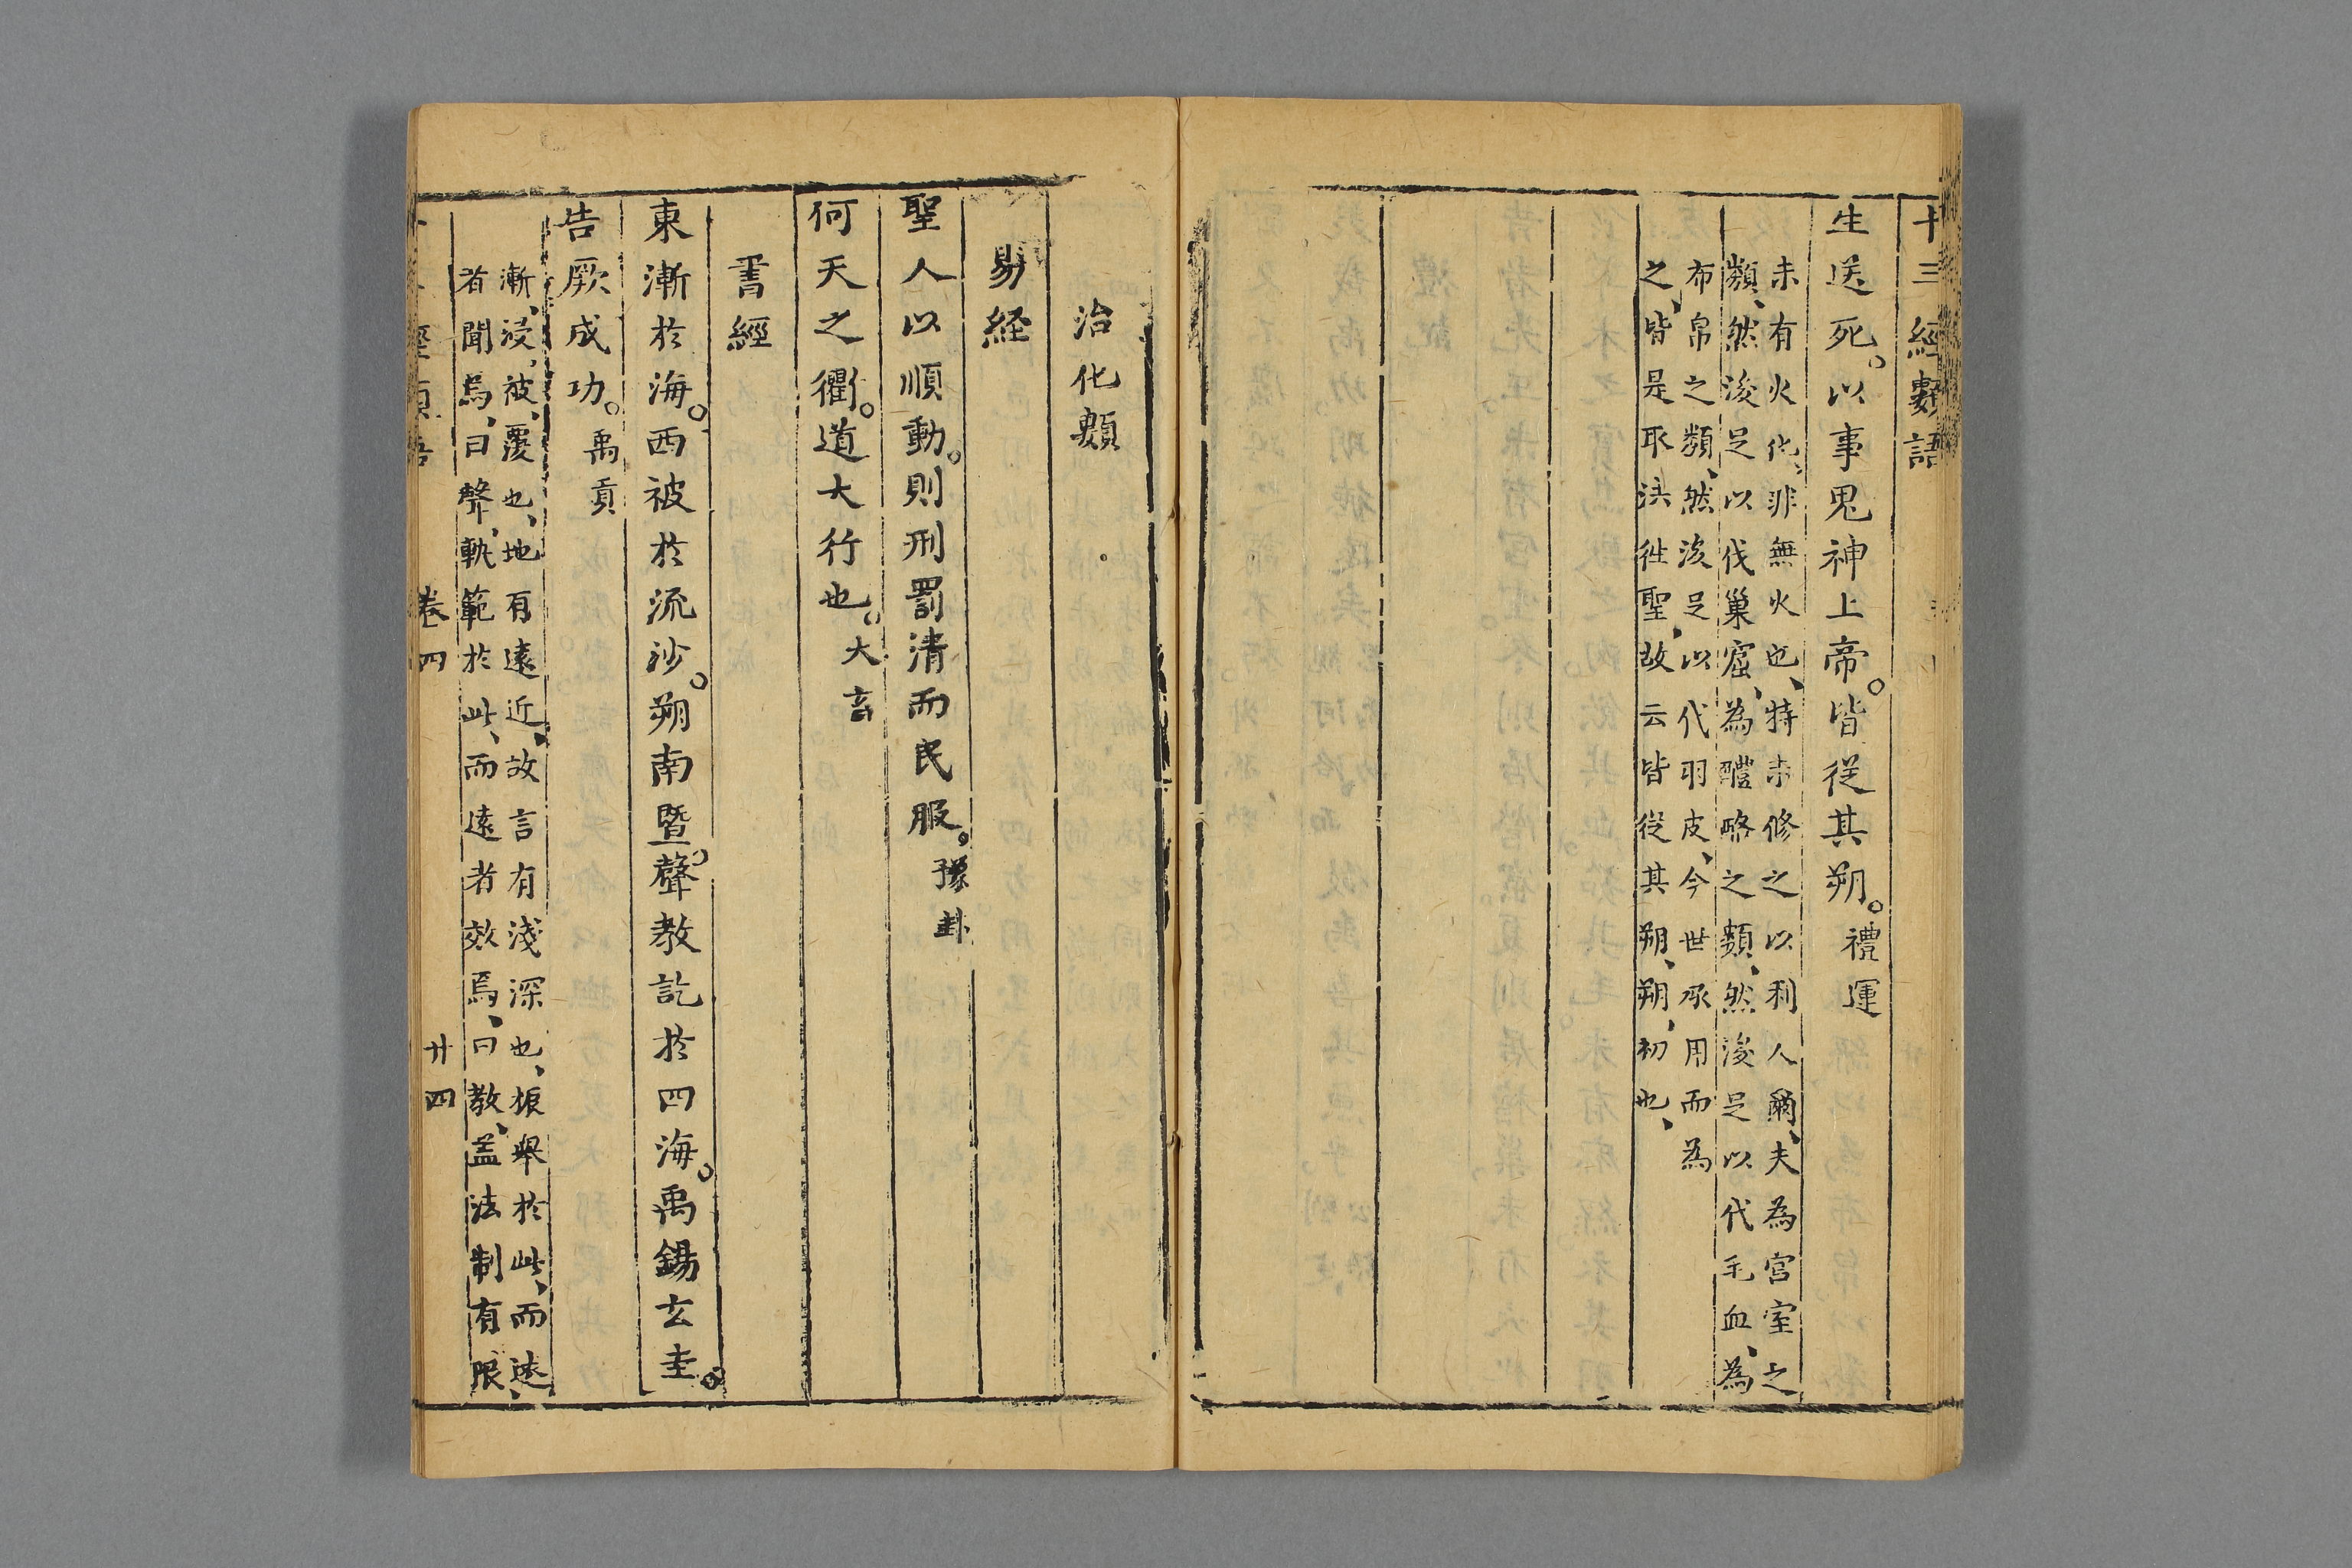 十三經類語
生送死。以事鬼神上帝。皆從其朔。禮運
未有火化、非無火也、特未修之以利人爾、夫為宮室之
類、然後足以伐巢窟、為醴酪之類、然後足以代毛血、為
布帛之類、然後足以代羽皮、今世承用而為
之、皆是取法徃聖、故云皆從其朔、朔、初也、
治化類
易経
聖人以順動。則刑罰清而民服。豫卦
何天之衢。道大行也。大畜
書經
東漸於海。西被於流沙。朔南暨。聲教訖於四海。禹錫玄圭。
告厥成功。禹貢
漸、浸、被、覆也、地有遠近、故言有淺深也、振舉於此、而遠
者聞焉、曰聲、軌範於此、而遠者效焉、曰教、盖法制有限、
卷四 廿四